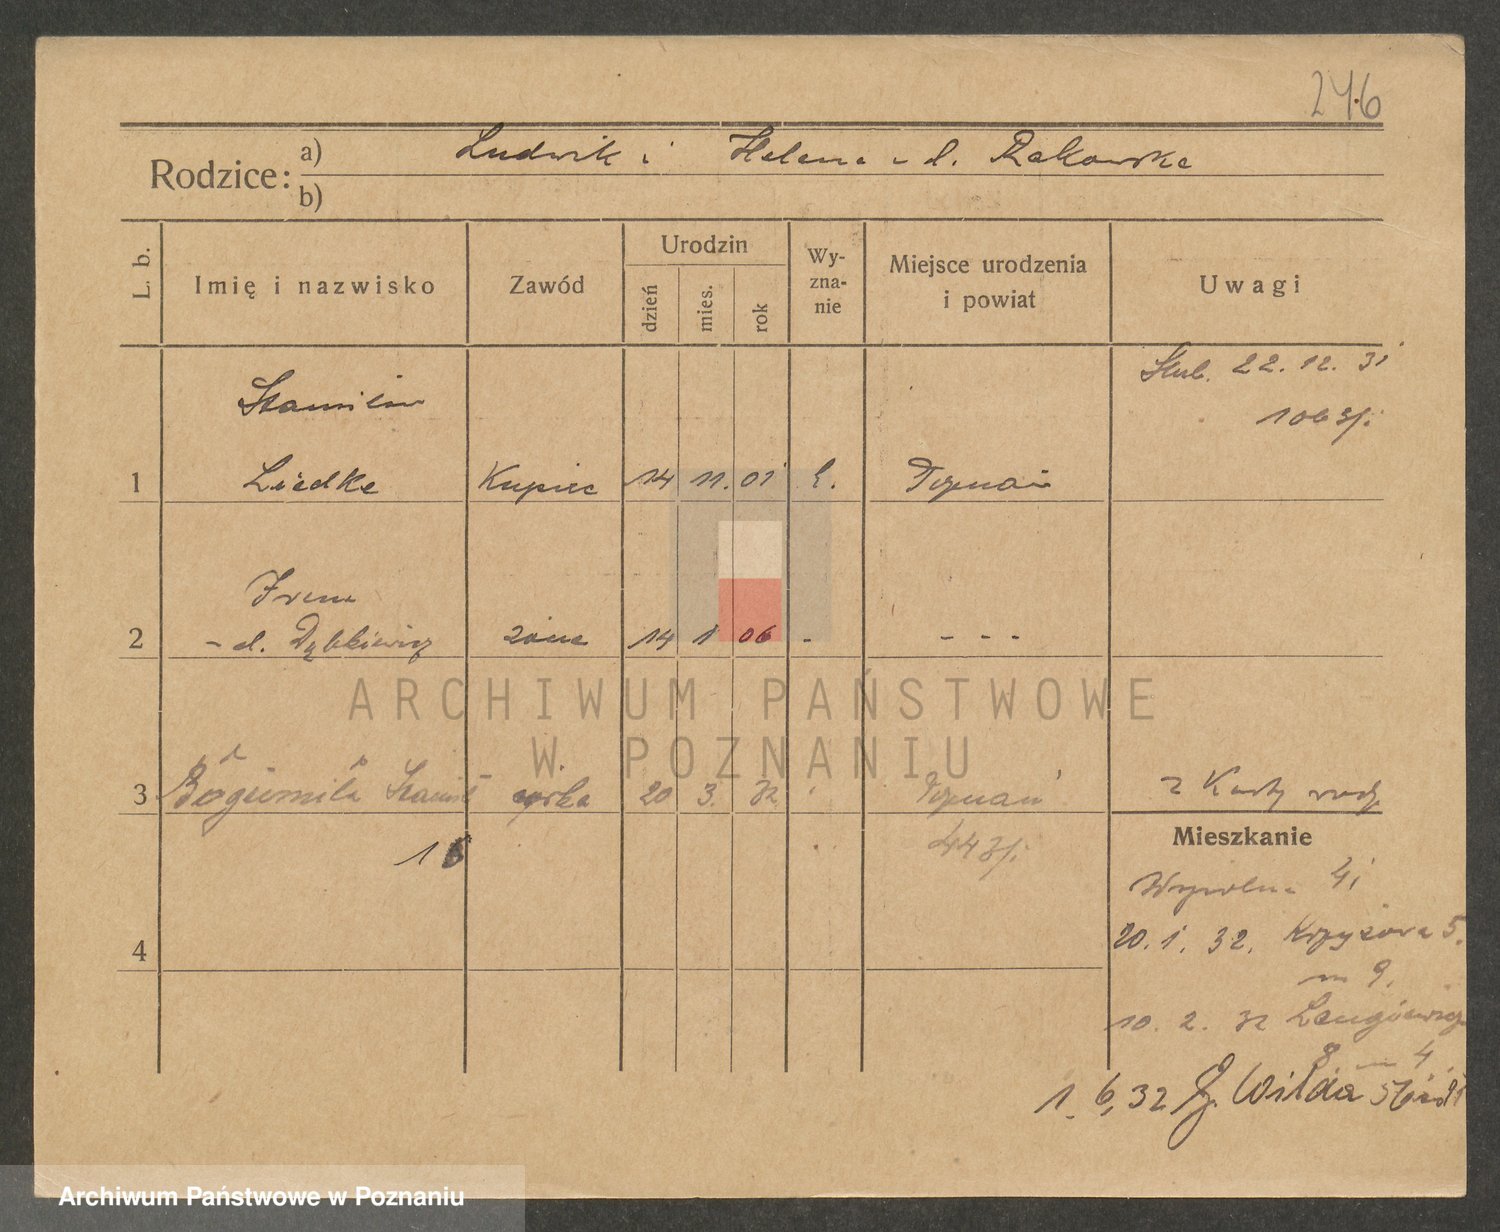 246
Rodzice: a) Ludwik i Helena z d. Rakowska
b)
L. b.
Imię i nazwisko
Zawód
Urodzin
dzień
mies.
rok
Wy-
zna-
nie
Miejsce urodzenia
i powiat
Uwagi
Stanisław
Ślub. 22. 12. 31
1 Liedke Kupiec 14 11. 01 Poznań
Irena
2 z d. żona 14 1 06 - - - -
ARCHIWUM PAŃSTWOWE
W POZNANIU
3 Bogumiła córka 20 3. 32 Poznań z Karty rodz.
Mieszkanie
16
20. 1. 32. Krzyżowa 5.
m 9.
4
10. 2. 32
8 m 4
1. 6. 32 Wilda
Archiwum Państwowe w Poznaniu